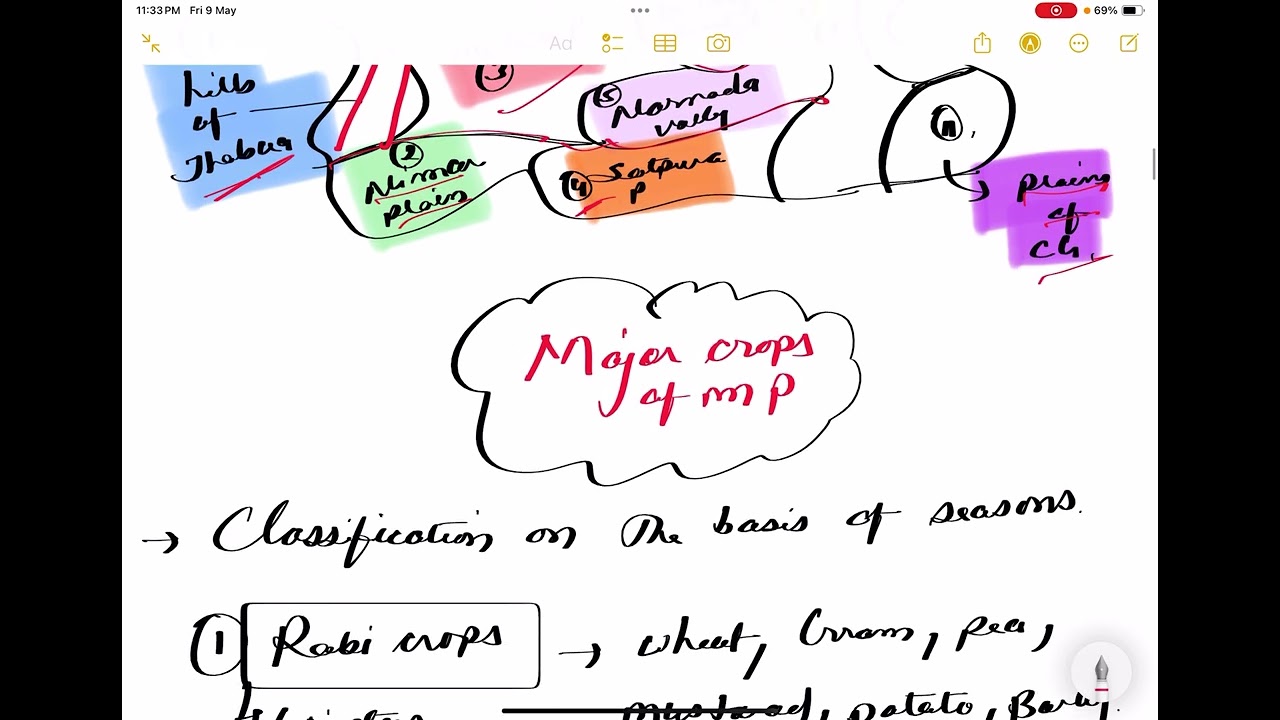 11:33 PM Fri 9 May
69%
Aa
hills
of
Jhabua
3
5 Narmada
valley
2
Nimar
plain
4 Satpura
P
11
plains
of
CG
Major crops
of MP
→ Classification on the basis of seasons.
1 Rabi crops → wheat, Gram, pea,
mustard, potato, Barley,